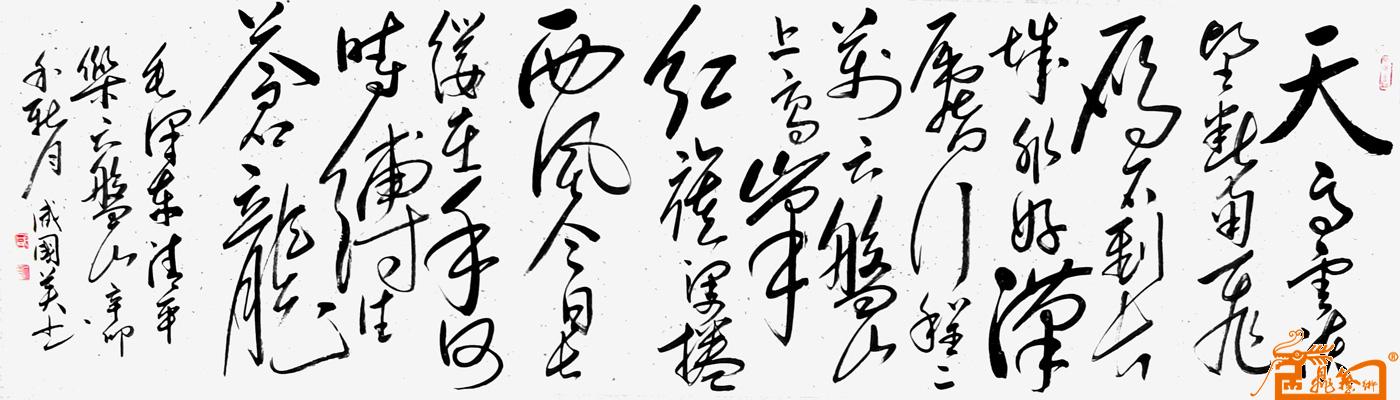 天高雲淡
望斷南飛
雁不到長
城非好漢
屈指行程二
萬六盤山
上高峰
紅旗漫捲
西風今日長
纓在手何
時縛住
蒼龍
毛澤東清平
樂六盤山辛卯
秋月 國美书